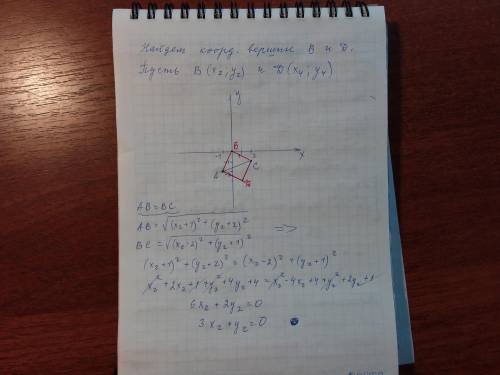 Найдем коорд. вершин B и D.
Пусть B(x₂; y₂) и D(x₄; y₄)
y
x
B
-1
2
C
AB=BC
AB = √((x₂+1)²+(y₂+2)²)
=>
BC = √((x₂-2)²+(y₂+1)²)
(x₂+1)²+(y₂+2)² = (x₂-2)²+(y₂+1)²
x₂²+2x₂+1+y₂²+4y₂+4 = x₂²-4x₂+4+y₂²+2y₂+1
6x₂+2y₂=0
3x₂+y₂=0